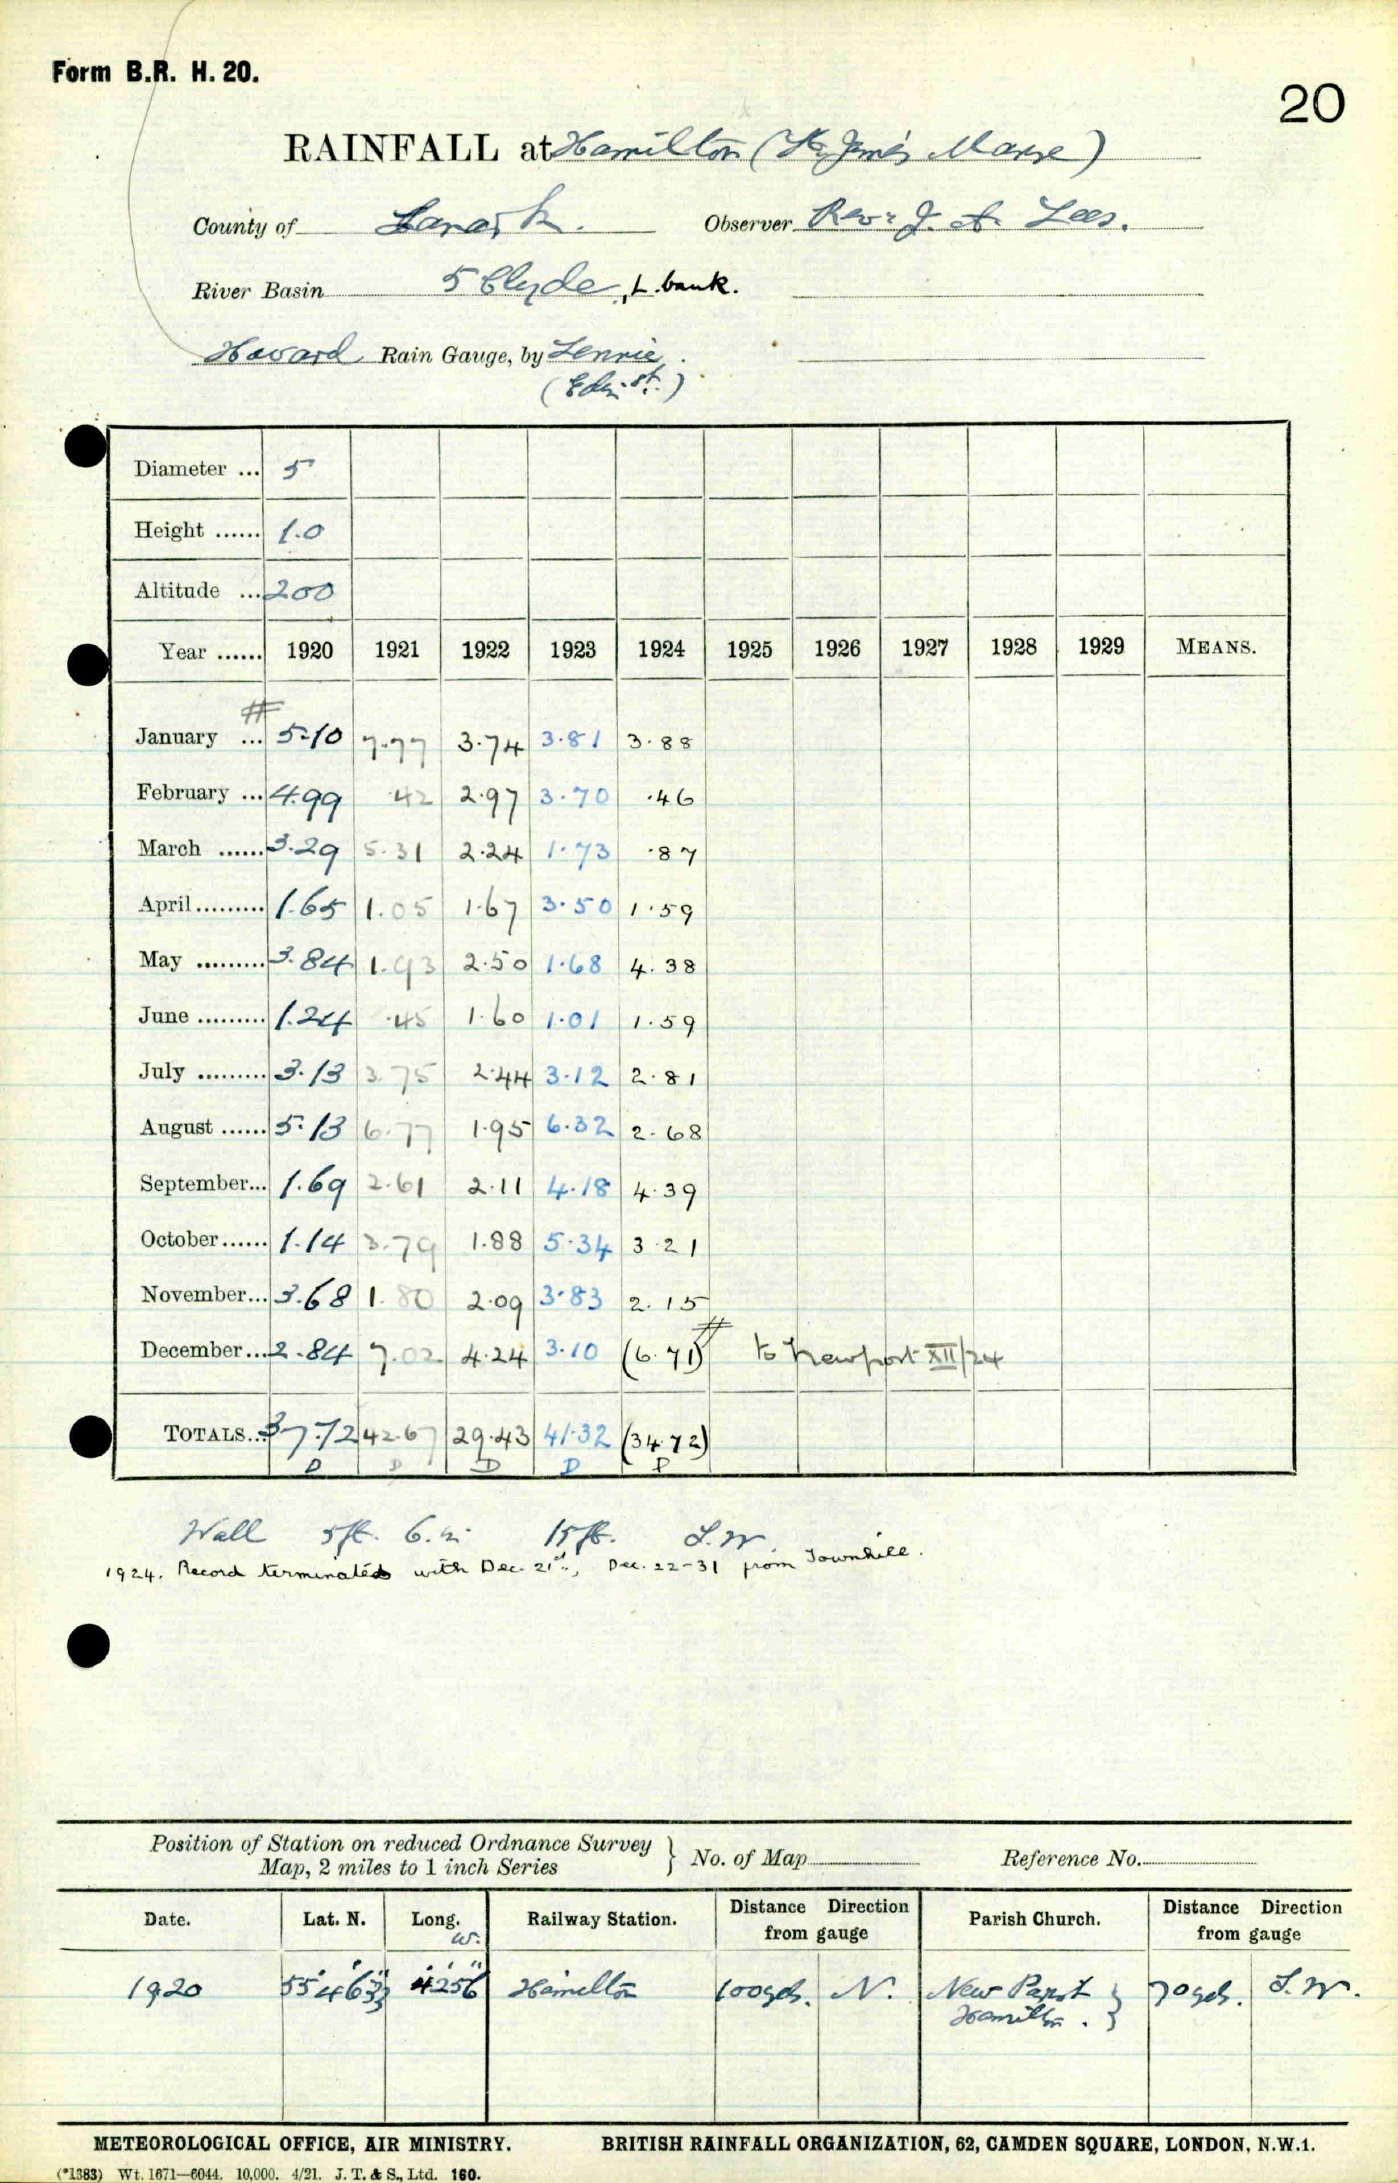 Form B.R. H. 20.
20
RAINFALL at Hamilton (St James Manse)
County of Lanark. Observer Revr J. A. Lees.
River Basin 5 Clyde, L. bank.
Howard Rain Gauge, by Lennie.
(Edin)
Diameter ... 5
Height ...... 1.0
Altitude ... 200
Year ...... 1920 1921 1922 1923 1924 1925 1926 1927 1928 1929 MEANS.
#
January ... 5.10 7.77 3.74 3.81 3.88
February ... 4.99 .42 2.97 3.70 .46
March ...... 3.29 5.31 2.24 1.73 .87
April ......... 1.65 1.05 1.67 3.50 1.59
May ......... 3.84 1.93 2.50 1.68 4.38
June ......... 1.24 .45 1.60 1.01 1.59
July ......... 3.13 3.75 2.44 3.12 2.81
August ...... 5.13 6.77 1.95 6.32 2.68
September... 1.69 2.61 2.11 4.18 4.39
October...... 1.14 3.79 1.88 5.34 3 21
November... 3.68 1.80 2.09 3.83 2.15
December... 2.84 7.02 4.24 3.10 (6.71)# to Newport XII/24
TOTALS... 37.72 42.67 29.43 41.32 (34.72)
D D D D D
Wall 5ft. 6.in 15ft. S.W.
1924. Record terminated with Dec. 21st, Dec. 22-31 from Townhill.
Position of Station on reduced Ordnance Survey
Map, 2 miles to 1 inch Series } No. of Map Reference No.
Date. Lat. N. Long. W. Railway Station. Distance Direction from gauge Parish Church. Distance Direction from gauge
1920 55° 46' 4° 2' 56" Hamilton 100yds. N. New Parish Hamilton. } 70yds. S.W.
METEOROLOGICAL OFFICE, AIR MINISTRY. BRITISH RAINFALL ORGANIZATION, 62, CAMDEN SQUARE, LONDON, N.W.1.
(*1383) Wt. 1671—6044. 10,000. 4/21. J. T. & S., Ltd. 160.